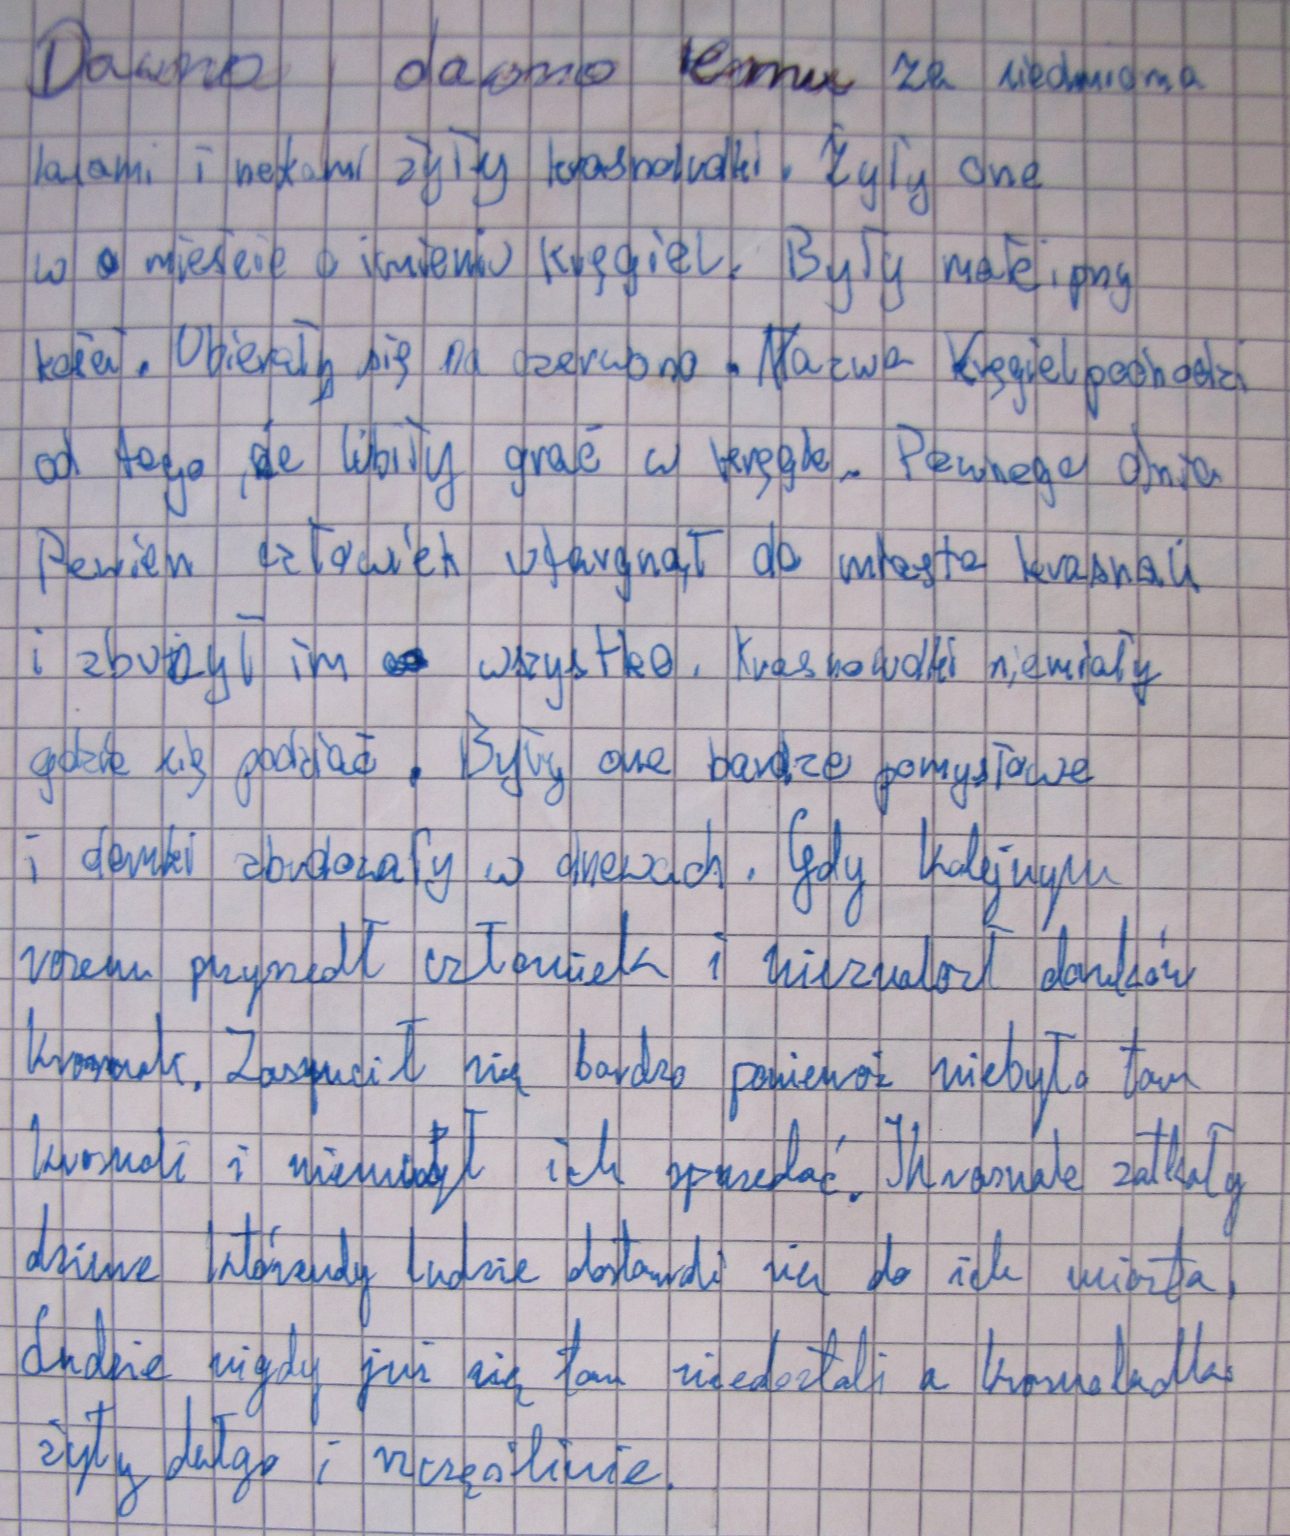 Dawno, dawno temu za siedmioma
lasami i rzekami żyły krasnoludki. Żyły one
w mieście o imieniu Kręgiel. Były małe i pny
kości. Ubierały się na czerwono. Nazwa Kręgiel pochodzi
od tego, że lubiły grać w kręgle. Pewnego dnia
Pewien człowiek wtargnął do miasta krasnali
i zbużył im wszystko. Krasnowudki niemiały
gdzie się podziać. Były one bardzo pomysłowe
i domki zbudowały w drzewach. Gdy kolejnym
razem przyszedł człowiek i nieznalazł domków
krasnali. Zasmucił się bardzo ponieważ niebyło tam
krasnali i niemógł ich sprzedać. Krasnale zatkały
dziure którendy ludzie dostawali się do ich miasta.
Ludzie nigdy już się tam niedostali a krasnoludki
żyły długo i szczęśliwie.